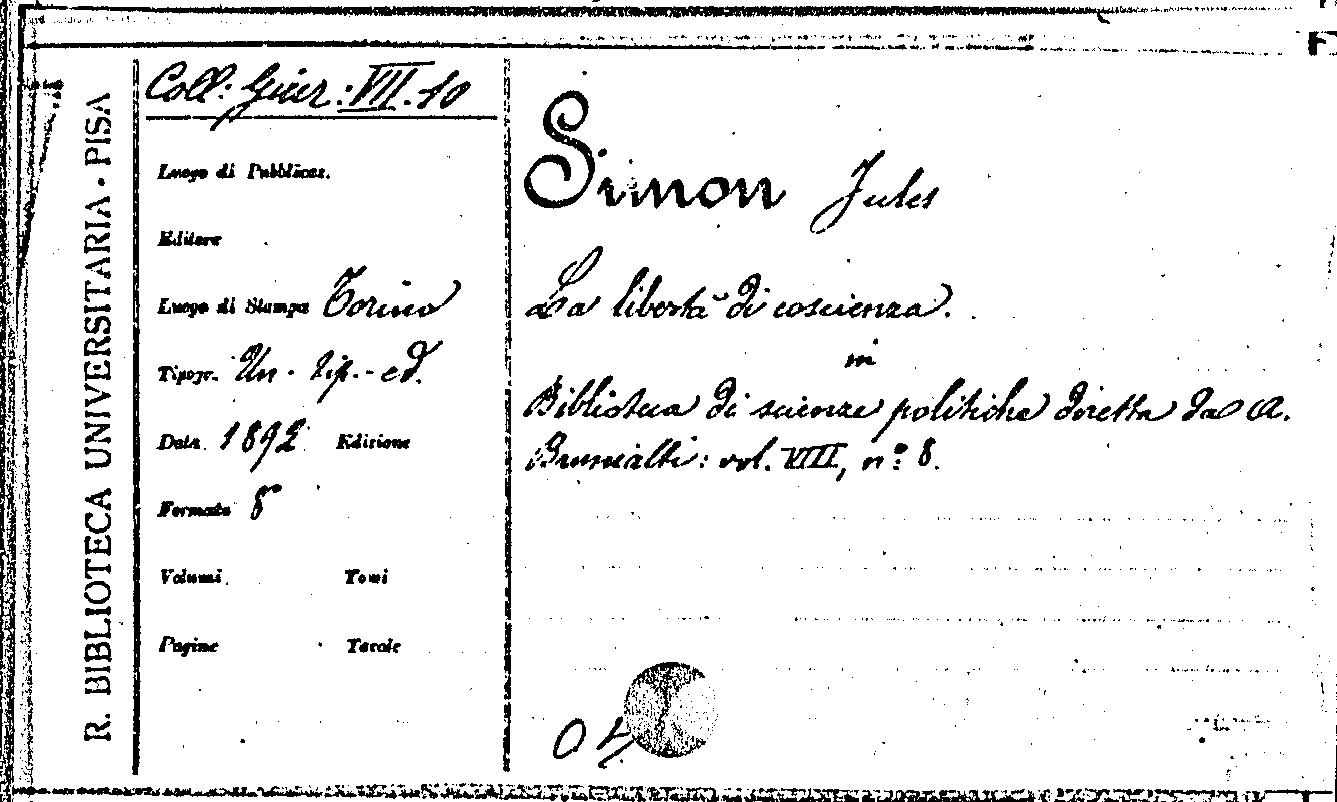 R. BIBLIOTECA UNIVERSITARIA · PISA
Coll: Giur: VII. 10
Luogo di Pubblicaz.
Editore
Luogo di Stampa Torino
Tipogr. Un. tip.- ed.
Data 1892 Edizione
Formato 8°
Volumi Tomi
Pagine Tavole
Simon Jules
La libertà di coscienza.
in
Biblioteca di scienze politiche diretta da A.
Brunialti: vol. VIII, n.° 8.